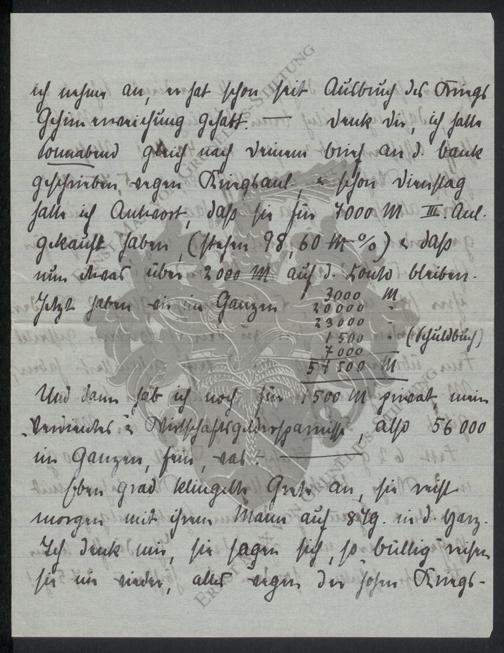 ich nehme an, er hat schon seit Ausbruch des Kriegs
Gehirnerweichung gehabt. — Denk Dir, ich hatte
Sonnabend gleich nach Deinem Brief an d. Bank
geschrieben wegen Kriegsanl., u. schon Dienstag
hatte ich Antwort, daß sie für 7000 M III Anl.
gekauft haben, (stehen 98,60 M %) u. daß
nun etwas über 2000 M auf d. Konto bleiben.
Jetzt haben wir im Ganzen 3000 M
20000 "
23000 "
1500 " (Schuldbuch)
7000 "
54500 M
Und dann hab ich noch für 1500 M privat mein
"Verdientes" u. Wirtschaftsgelderspamisse, also 56000
im Ganzen, fein, was? —
Eben grad klingelte Grete an, sie reist
morgen mit ihrem Mann auf 8 Tg. in d. Harz.
Ich denk mir, sie sagen sich, so "billig" reisen
sie nie wieder, alles wegen der hohen Kriegs-
ERNST MAX VON GRUNELIUS-STIFTUNG